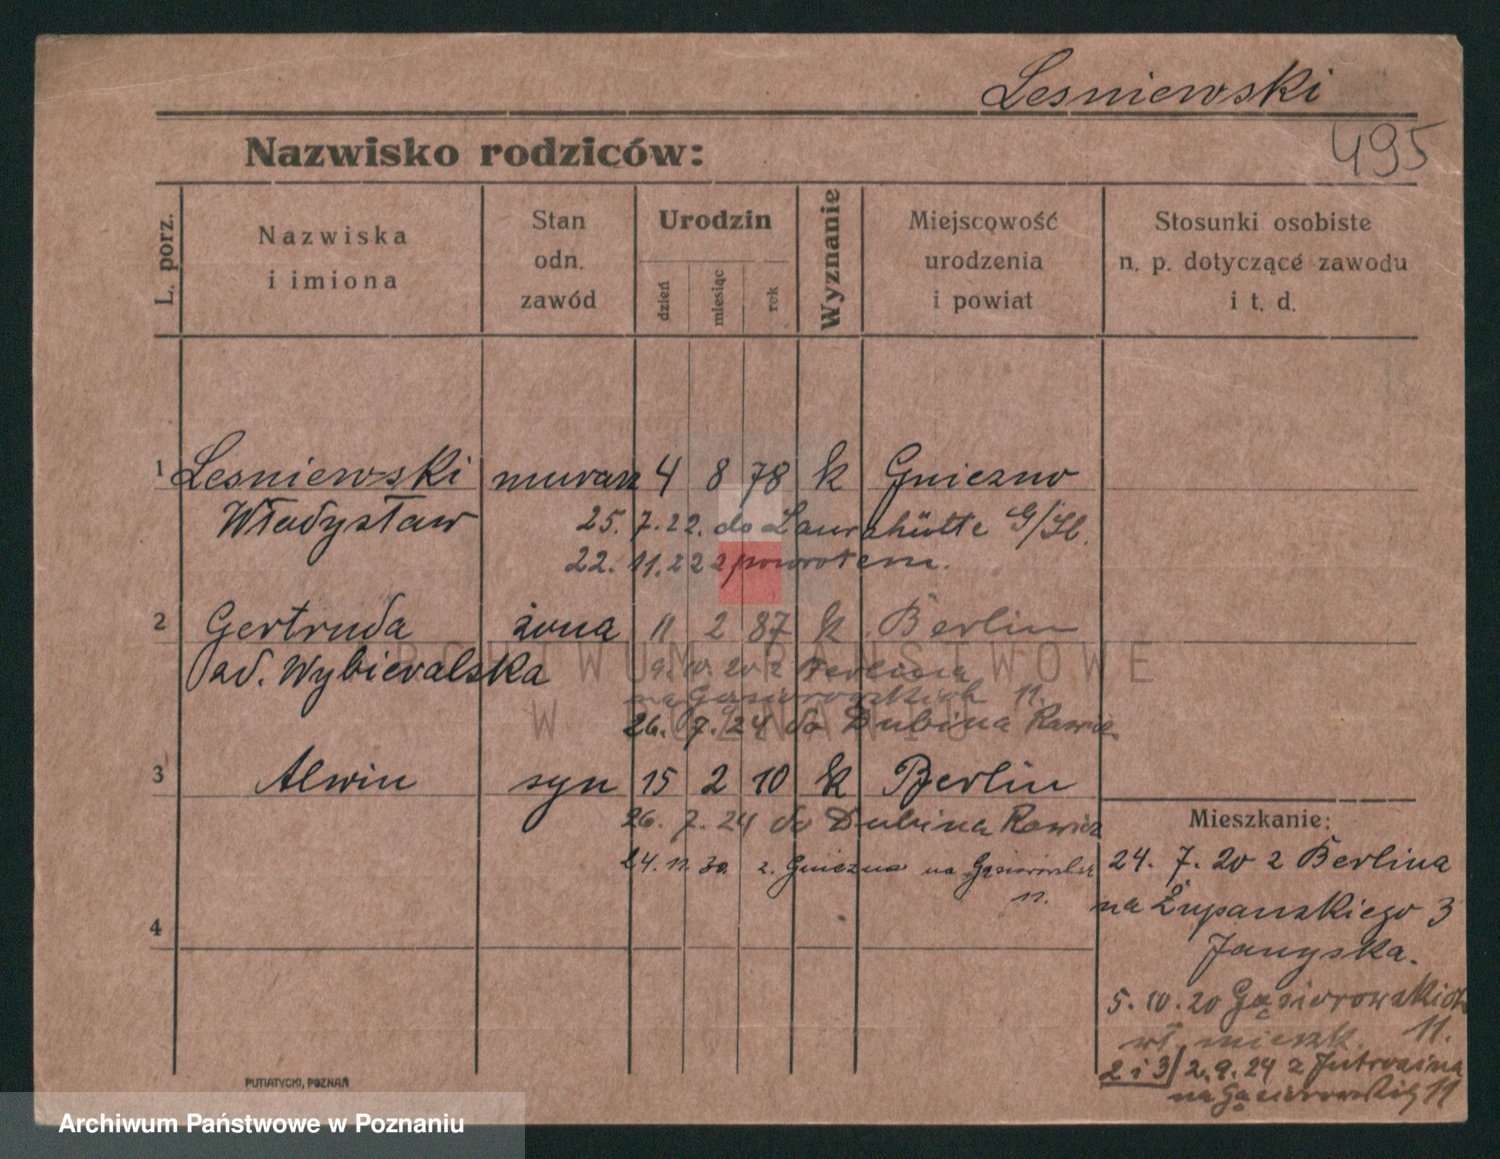 Lesniewski
495
Nazwisko rodziców:
L. porz.
Nazwiska
i imiona
Stan
odn.
zawód
Urodzin
dzień
miesiąc
rok
Wyznanie
Miejscowość
urodzenia
i powiat
Stosunki osobiste
n. p. dotyczące zawodu
i t. d.
1 Lesniewski murarz 4 8 78 k Gniezno
Władysław 25. 7. 22. do Laurahütte G/Sl.
22. 11. 22 z powrotem.
2 Gertruda żona 11 2 87 k Berlin
ARCHIWUM PAŃSTWOWE
W POZNANIU
Wybieralska 9. 10. 20 z Berlina
na Gąsiorowskich 11.
26. 7. 24 do Dubina Rawicz
3 Alwin syn 15 2 10 k Berlin
26. 7. 24 do Dubina Rawicz
24. 11. 30 z Gniezna na Gąsiorowskich
11.
4
Mieszkanie:
24. 7. 20 z Berlina
na Żupanskiego 3
5. 10. 20 Gąsiorowskich
wł. mieszk. 11.
2 i 3/ 2. 9. 24 z Jutrosina
na Gąsiorowskich 11
PUTIATYCKI, POZNAŃ
Archiwum Państwowe w Poznaniu